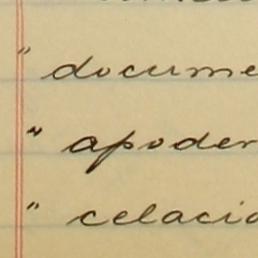 " docume
" apoder
" celacio